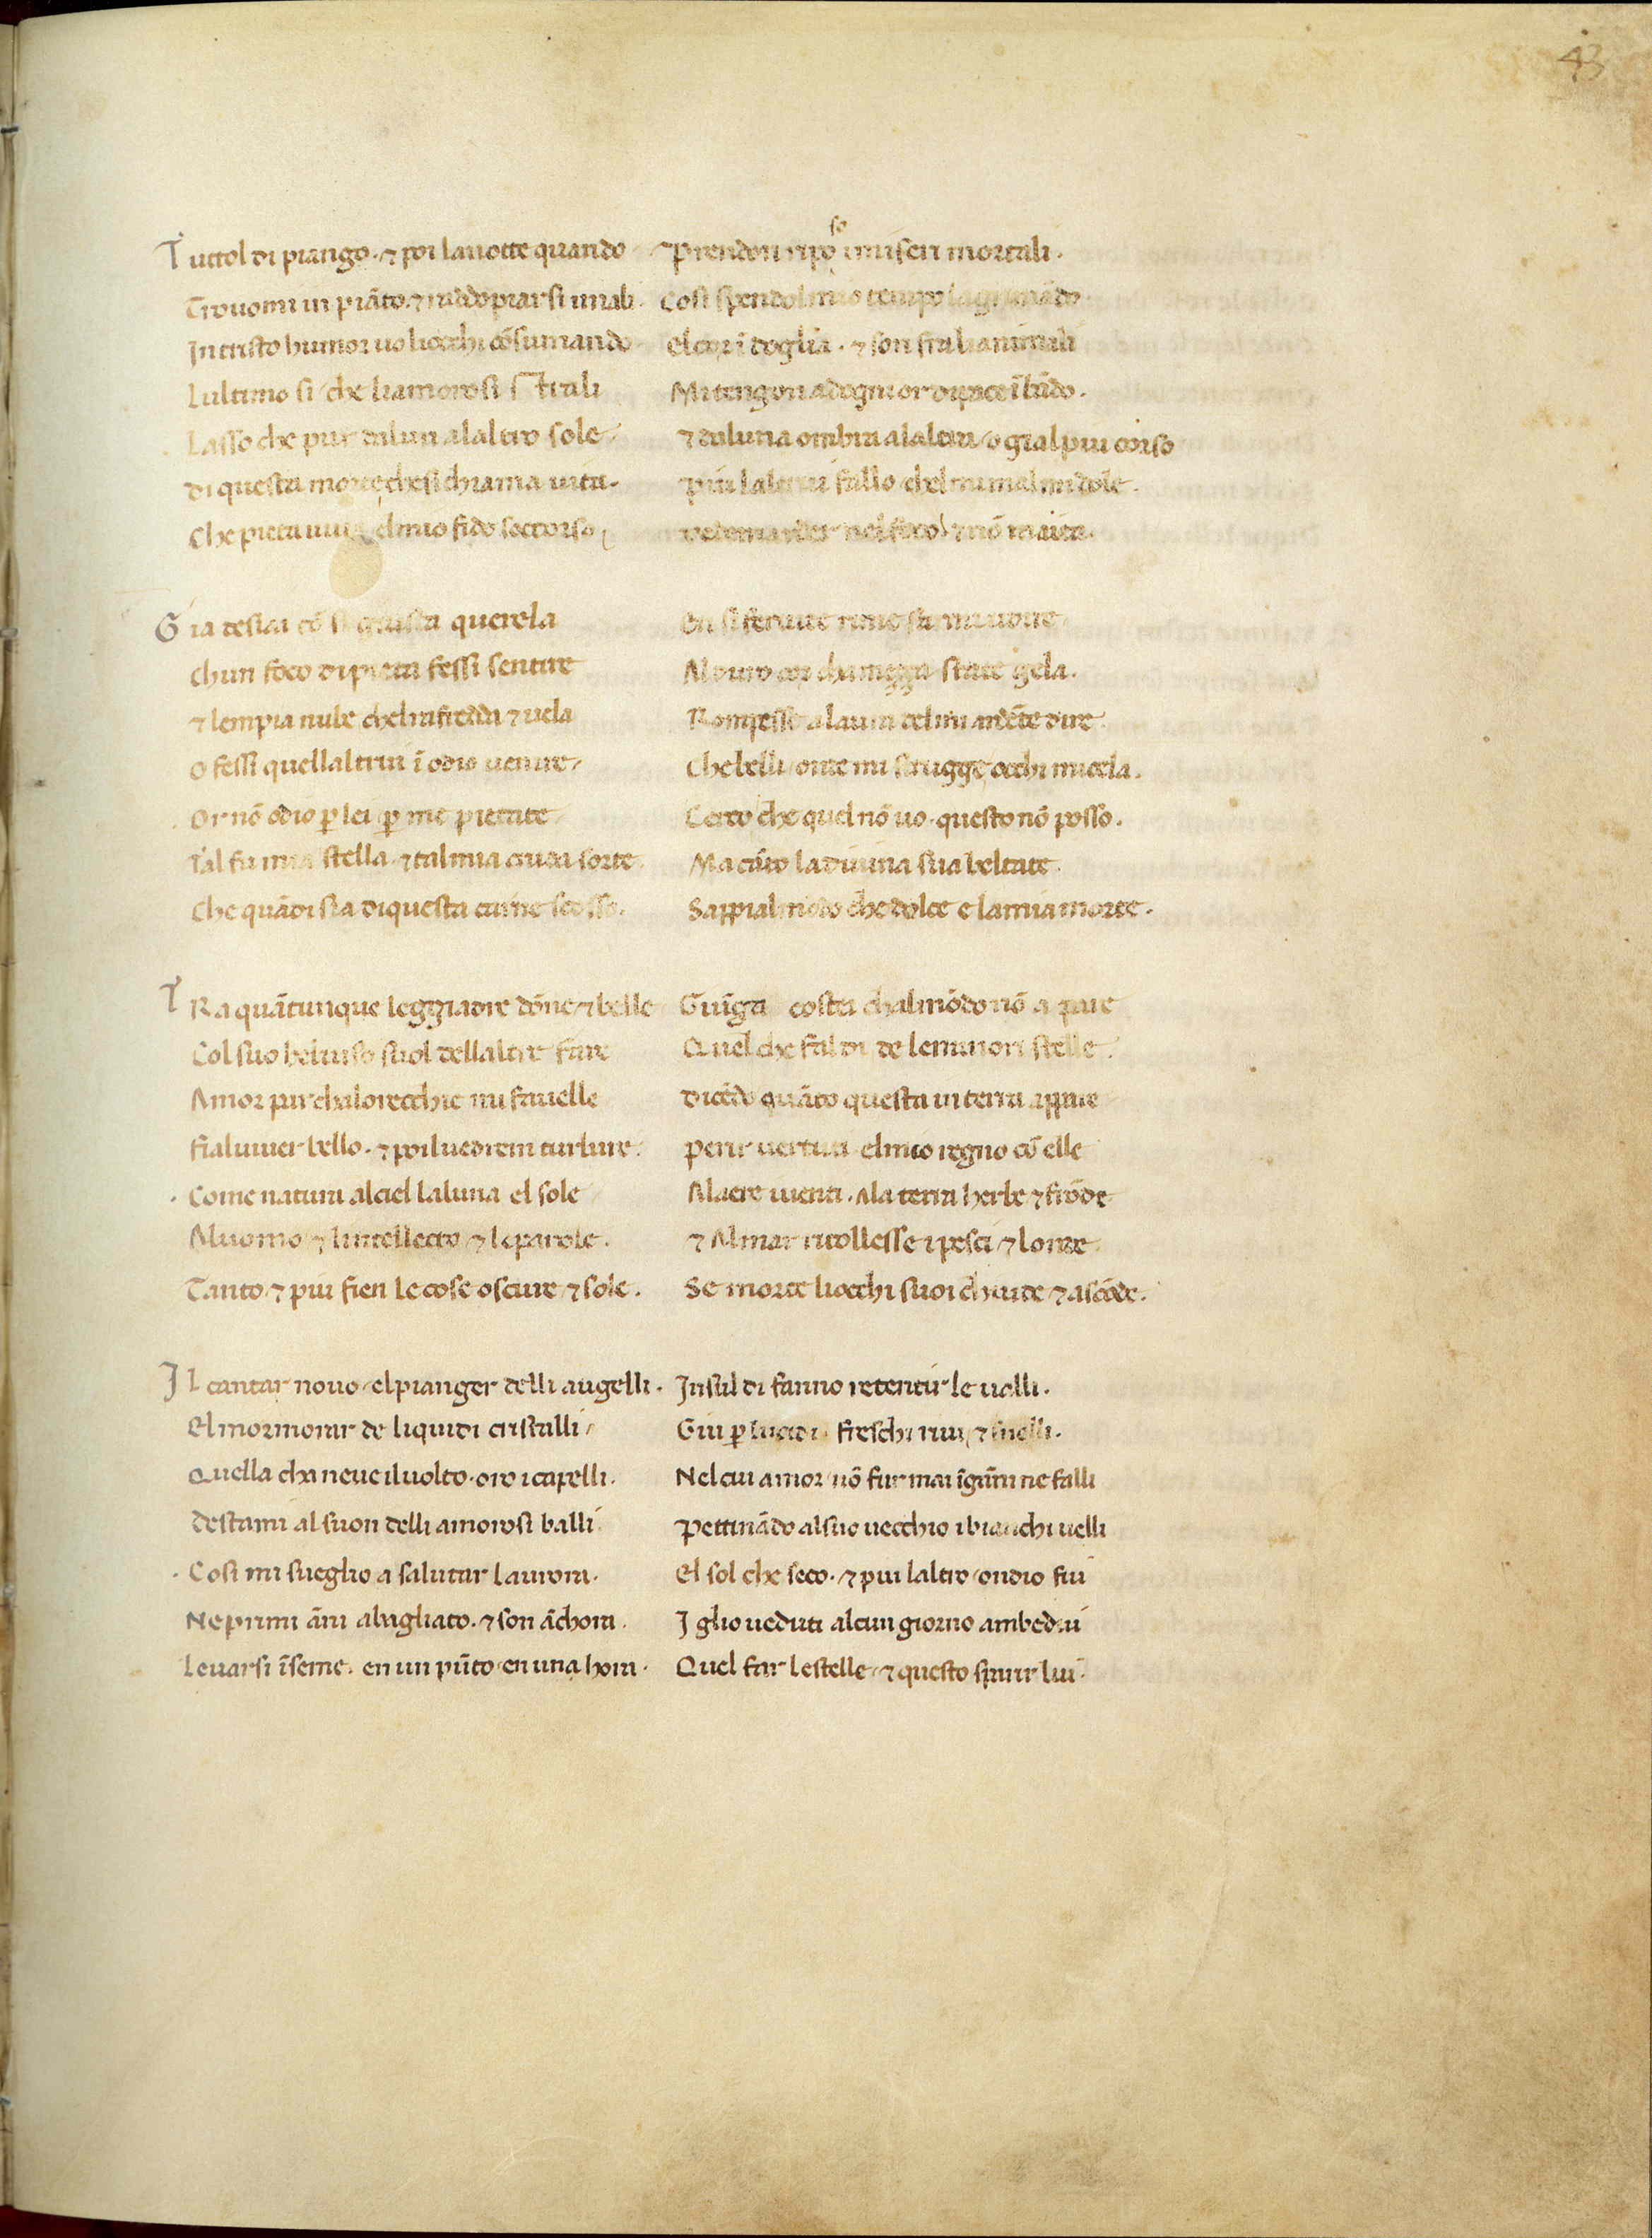 43
Tuttol di piango. ⁊ poi lanotte quando Prendon riposo imiseri mortali.
Trovomi in piāto. ⁊ raddopiarsi imali. Cosi spendolmio tempo lagrimādo
In tristo humor uo liocchi cōsumando Elcor ī doglia. ⁊ son fralianimali
Lultimo si che liamorosi strali Mi tengon adogni or di pace ī bādo.
Lasso che pur dalun alaltro sole ⁊ daluna ombra alaltra o gial piu corso
di questa morte chesi chiama uita. piu laltrui fallo chel mi mal mi dole.
Che pieta uiua elmio fido soccorso uedem arder nel foco ⁊ nō maita.
Gia desiai cō si giusta querela En si feruide rime farmi udire
Chun foco di pieta fessi sentire Al duro cor cha mezza state gela.
⁊ lempia nube chelrafredda ⁊ uela Rompesse alaura del mi ardēte dire
O fessi quellaltrui ī odio uenire Che belli onde mi strugge occhi micela.
Or nō odio ꝑ lei ꝑ me pietate Cerco che quel nō uo. questo nō posso.
Tal fu mia stella ⁊ tal mia cruda sorte Ma cāto ladiuina sua beltate.
Che quādi sia diquesta carne scosso. Sappial mōdo che dolce e lamia morte.
TRa quātunque leggiadre dōne ⁊ belle Giūga costei chalmōdo nō a pare
Col suo beluiso suol dellaltre fare Quel che fal di de leminori stelle.
Amor par chaloreccchie mi fauelle dicēdo quāto questa in terra appare
Fialuiuer bello. ⁊ poil uedrem turbare. perir uertuti elmio regno cō elle
Come natura alciel laluna el sole Alaere uenti. Ala terra herbe ⁊ frōde
Aluomo ⁊ lintellecto ⁊ leparole. ⁊ Almar ritollesse i pesci ⁊ londe.
Tanto ⁊ piu fien le cose oscure ⁊ sole. Se morte liocchi suoi chiude ⁊ ascōde.
Il cantar nouo elpianger delli augelli. Insul di fanno retentir le ualli.
El mormorar de liquidi cristalli Giu ꝑ lucidi freschi riui ⁊ snelli.
Quella cha neue iluolto. oro icapelli. Nelcui amor nō fur mai īgāni ne falli
destami al suon delli amorosi balli Pettinādo alsuo uecchio i bianchi uelli
Cosi mi sueglio a salutar laurora. El sol che seco. ⁊ piu laltro ondio fui
Ne primi āni abagliato. ⁊ son āchora. I glio ueduti alcun giorno ambedui
leuarsi īseme. en un pūto en una hora. Quel far lestelle ⁊ questo sparir lui.